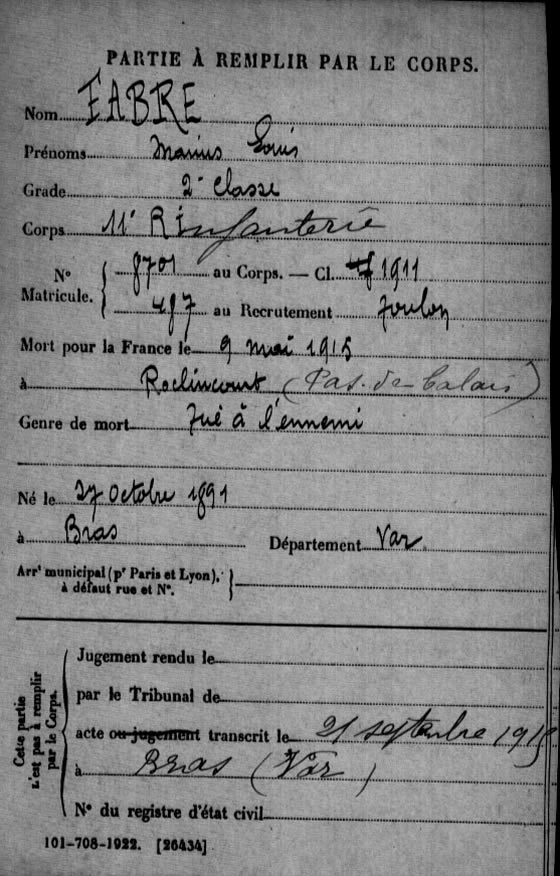 PARTIE À REMPLIR PAR LE CORPS.
Nom FABRE
Prénoms Marius Louis
Grade 2e Classe
Corps 11e R infanterie
N° Matricule. { 8701 au Corps. — Cl. 1911
487 au Recrutement Toulon
Mort pour la France le 9 mai 1915
à Roclincourt (Pas-de-Calais)
Genre de mort Tué à l'ennemi
Né le 27 Octobre 1891
à Bras Département Var
Arrt municipal (pr Paris et Lyon), à défaut rue et N°. }
Cette partie n'est pas à remplir par le Corps. {
Jugement rendu le
par le Tribunal de
acte ou jugement transcrit le 21 septembre 1915
à Bras (Var)
N° du registre d'état civil
101-708-1922. [26434]